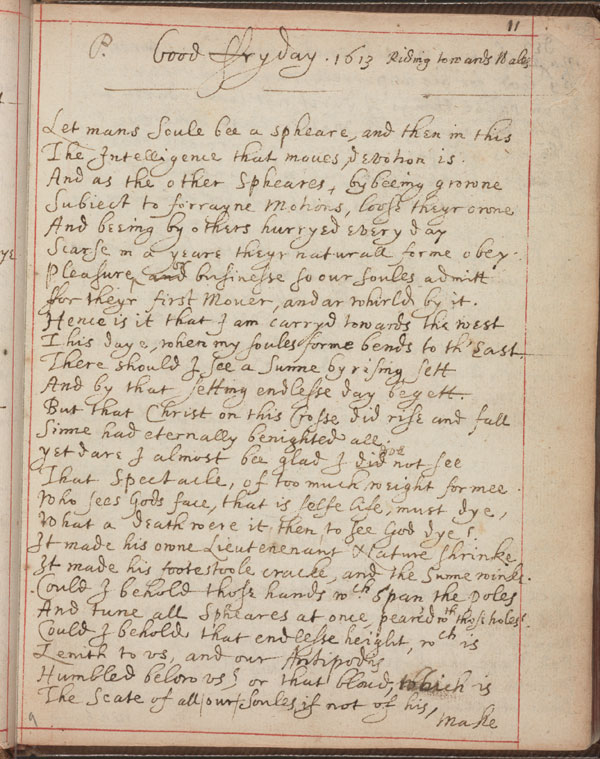 11
P. Good ffryday. 1613 Riding towards Wales
Let mans Soule bee a Spheare, and then in this
The Intelligence that moues, devotion is.
And as the other Spheares, by beeing growne
Subiect to forrayne Motions, loose theyr owne
And beeing by others hurryed every day
Scarse in a yeare theyr naturall forme obey.
Pleasure, or businesse so our soules admitt
ffor theyr first Mouer, and ar whirld by it.
Hence is it that I am carryd towards the west
This daye, when my soules forme bends to th' East.
There should I see a Sunne by rising sett
And by that setting endlesse day begett.
But that Christ on this Crosse did rise and fall
Sinne had eternally benighted all.
yet dare I almost bee glad I did not see
That Spectacle, of too much weight for mee.
Who sees Gods face, that is selfe life, must dye,
What a death were it then to see God dye?
It made his owne Lieutenenant Nature shrinke
It made his footestoole cracke, and the Sunne winke.
Could I behold those hands wch span the Poles
And tune all Spheares at once, pearc'd wth those holes?
Could I behold that endlesse height, wch is
Zenith to vs, and our Antipodes
Humbled below vs? or that bloud, which is
The Seate of all our Soules, if not of his,
make